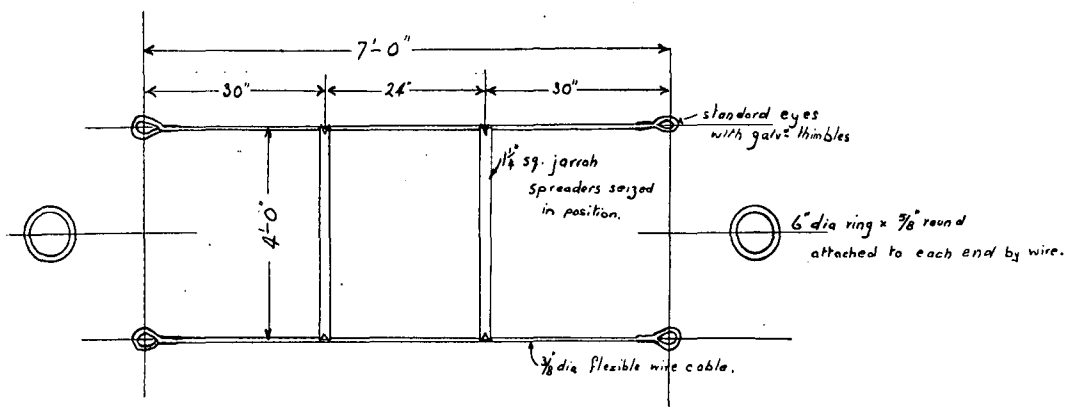 7'-0"
30" 24" 30"
standard eyes
with galvᵈ thimbles
1 1/4" sq. jarrah
spreaders seized
in position.
4'-0"
6" dia ring x 5/8" round
attached to each end by wire.
3/8" dia flexible wire cable.